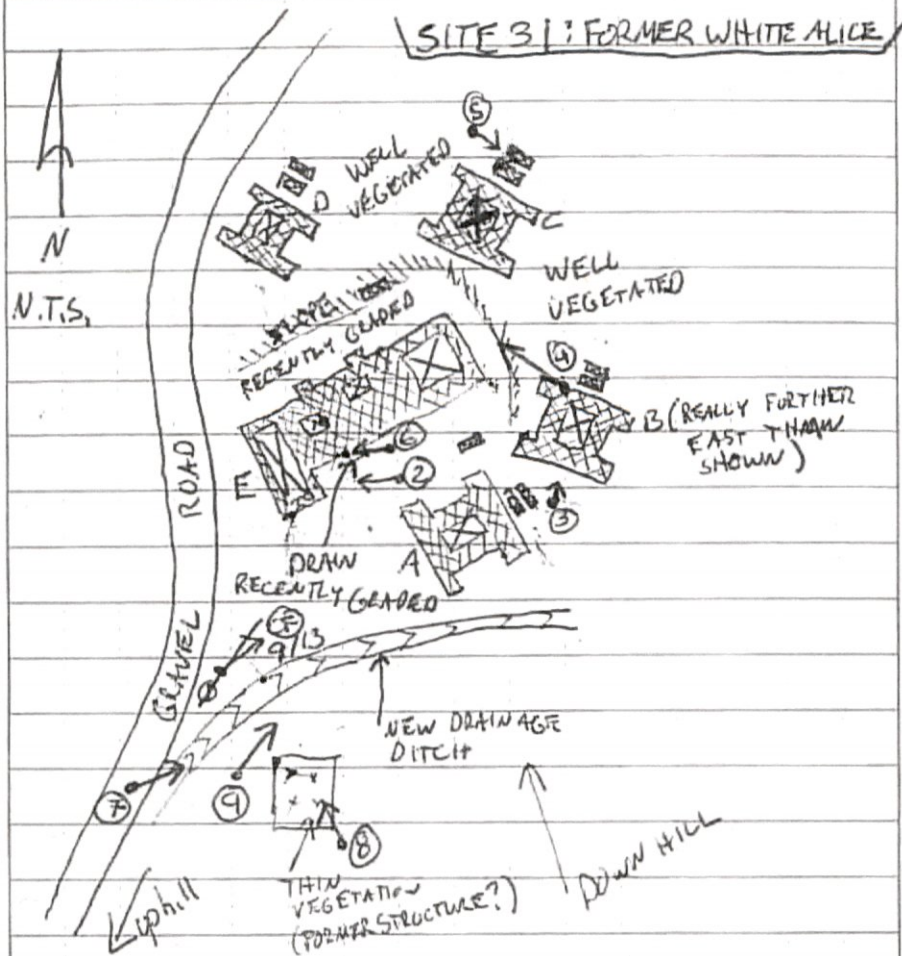 SITE 31: FORMER WHITE ALICE
N
N.T.S.
5
D
WELL
VEGETATED
C
WELL
VEGETATED
SLOPE
RECENTLY GRADED
4
B (REALLY FURTHER
EAST THAN
SHOWN)
6
2
E
3
A
DRAIN
RECENTLY GRADED
GRAVEL ROAD
9/13
NEW DRAINAGE
DITCH
7
9
8
THIN
VEGETATION
(FORMER STRUCTURE?)
DOWN HILL
uphill